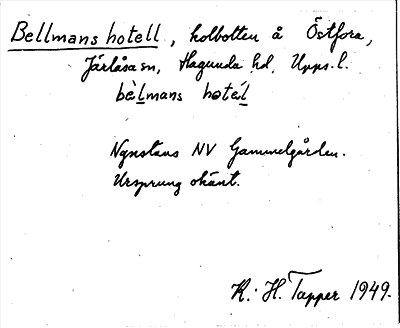 Bellmans hotell, kolbotten å Östfora,
Järlåsa sn, Hagunda hd, Upps. l.
bèlmans hoté̱l
NV Gammelgården.
Ursprung okänt.
R: H. Tapper 1949.